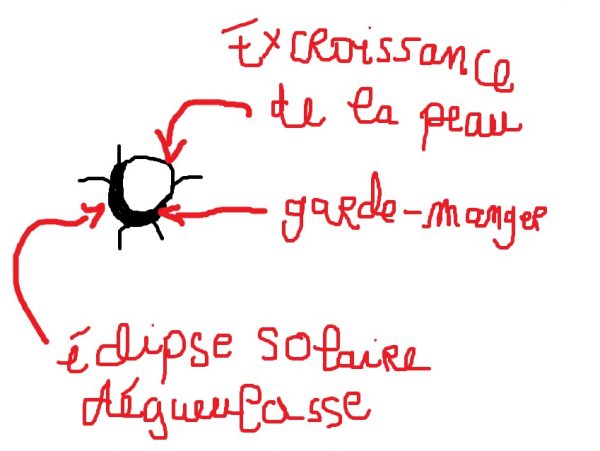 Excroissance
de la peau
garde-manger
éclipse solaire
dégueulasse